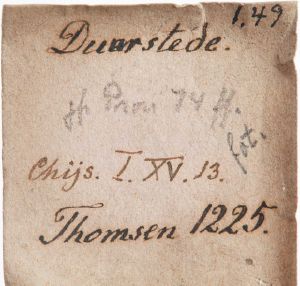 1.49
Duurstede.
Prov 74 ff.
fot.
Chijs. I. XV. 13.
Thomsen 1225.